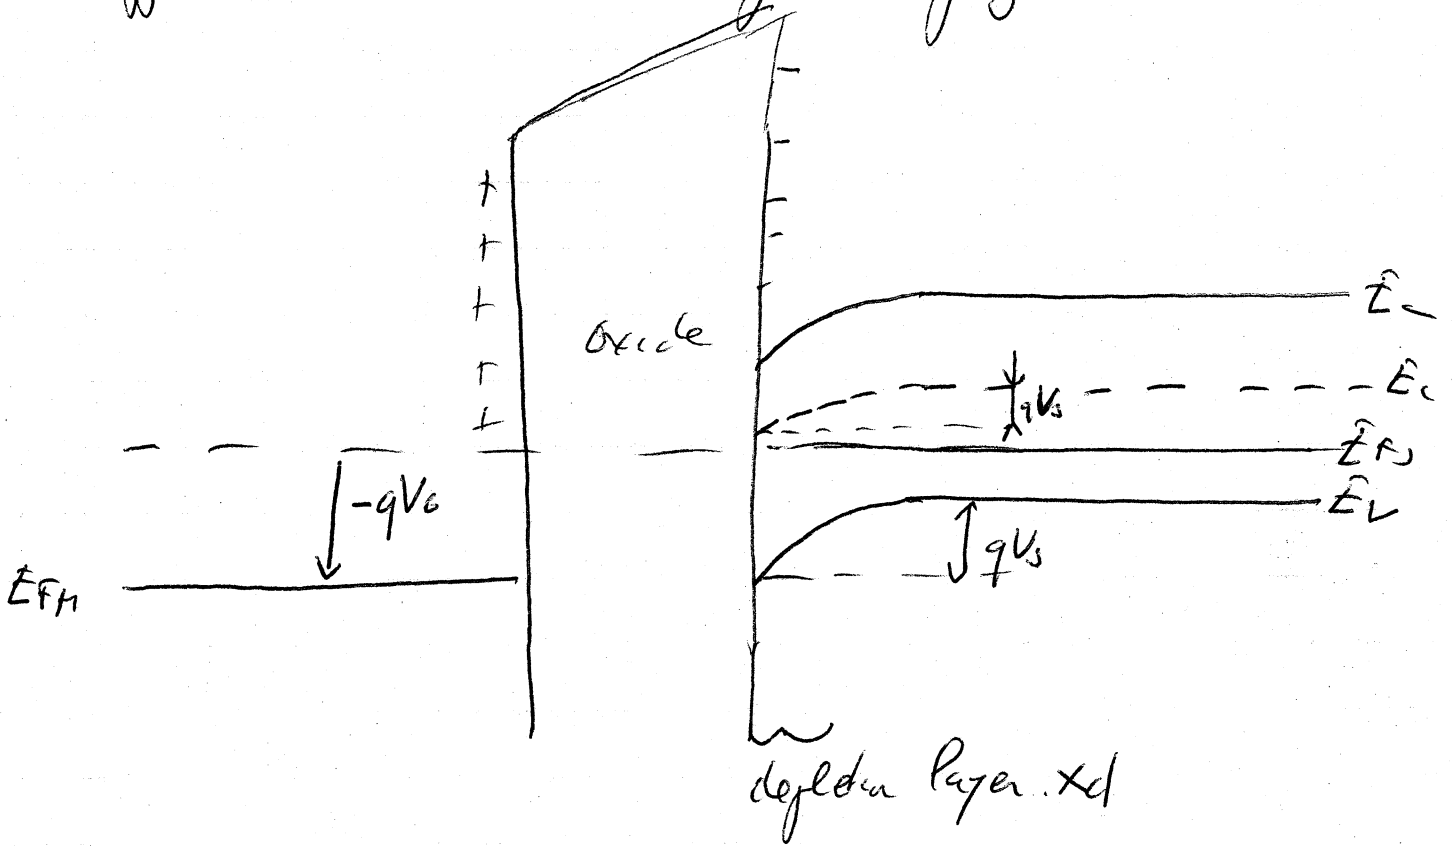 + -
+ -
+ -
+ -
+
oxide
Ec
Ei
qVs
EFs
-qVG
EV
qVs
EFM
depletion layer. xd